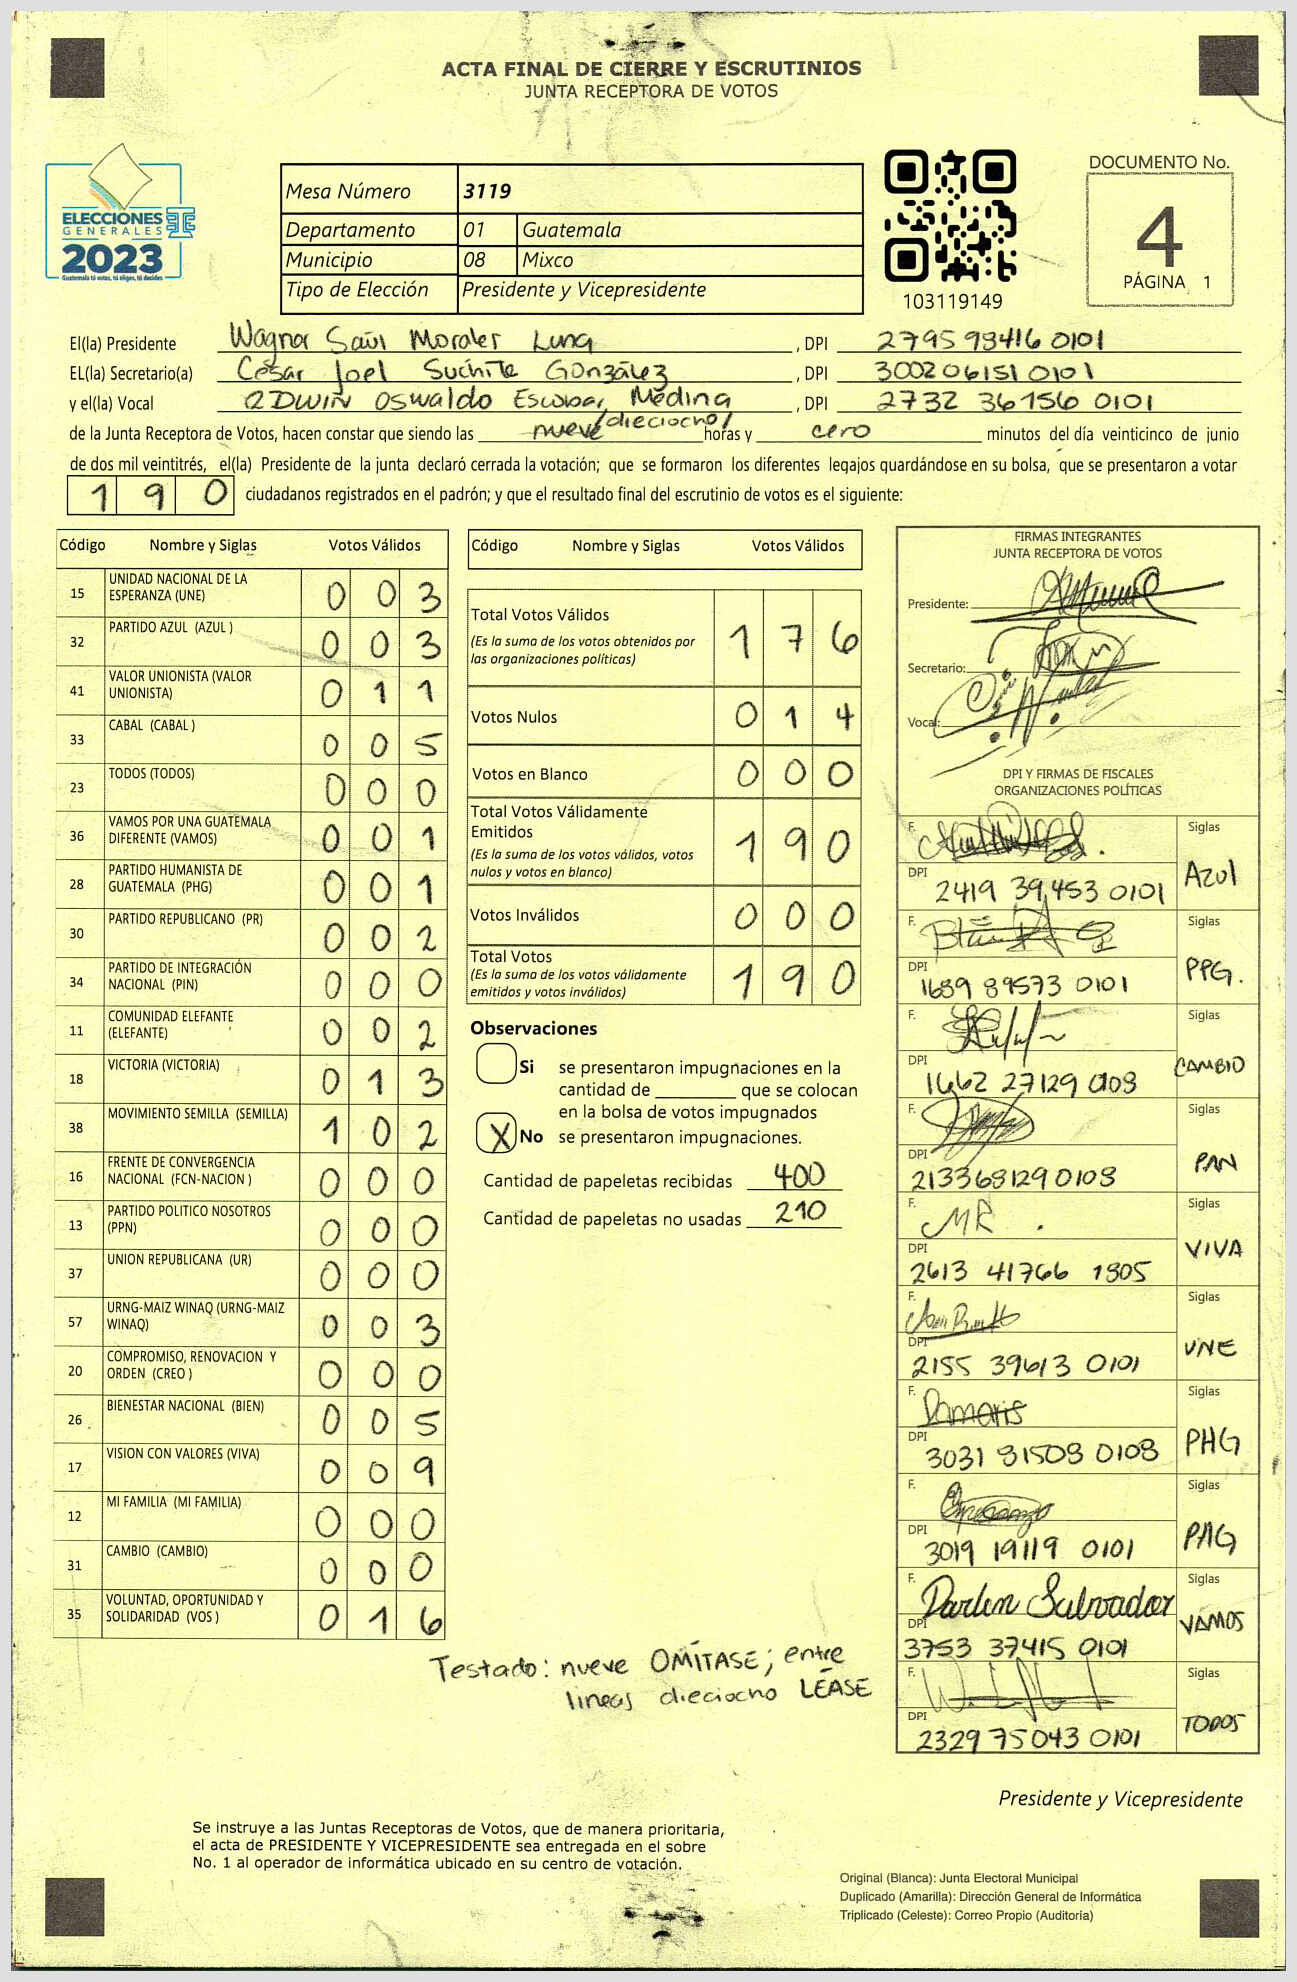 ACTA FINAL DE CIERRE Y ESCRUTINIOS
JUNTA RECEPTORA DE VOTOS
ELECCIONES
GENERALES
2023
Guatemala tú votas, tú eliges, tú decides
Mesa Número 3119
Departamento 01 Guatemala
Municipio 08 Mixco
Tipo de Elección Presidente y Vicepresidente
103119149
DOCUMENTO No.
4
PÁGINA 1
El(la) Presidente Wagner Saúl Morales Luna , DPI 2795 98416 0101
EL(la) Secretario(a) César Joel Suchite González , DPI 3002 06151 0101
y el(la) Vocal EDWIN Oswaldo Escobar Medina , DPI 2732 36156 0101
de la Junta Receptora de Votos, hacen constar que siendo las nueve /dieciocho/ horas y cero minutos del día veinticinco de junio
de dos mil veintitrés, el(la) Presidente de la junta declaró cerrada la votación; que se formaron los diferentes legajos guardándose en su bolsa, que se presentaron a votar
190 ciudadanos registrados en el padrón; y que el resultado final del escrutinio de votos es el siguiente:
Código Nombre y Siglas Votos Válidos
15 UNIDAD NACIONAL DE LA ESPERANZA (UNE) 0 0 3
32 PARTIDO AZUL (AZUL ) 0 0 3
41 VALOR UNIONISTA (VALOR UNIONISTA) 0 1 1
33 CABAL (CABAL ) 0 0 5
23 TODOS (TODOS) 0 0 0
36 VAMOS POR UNA GUATEMALA DIFERENTE (VAMOS) 0 0 1
28 PARTIDO HUMANISTA DE GUATEMALA (PHG) 0 0 1
30 PARTIDO REPUBLICANO (PR) 0 0 2
34 PARTIDO DE INTEGRACIÓN NACIONAL (PIN) 0 0 0
11 COMUNIDAD ELEFANTE (ELEFANTE) 0 0 2
18 VICTORIA (VICTORIA) 0 1 3
38 MOVIMIENTO SEMILLA (SEMILLA) 1 0 2
16 FRENTE DE CONVERGENCIA NACIONAL (FCN-NACION ) 0 0 0
13 PARTIDO POLITICO NOSOTROS (PPN) 0 0 0
37 UNION REPUBLICANA (UR) 0 0 0
57 URNG-MAIZ WINAQ (URNG-MAIZ WINAQ) 0 0 3
20 COMPROMISO, RENOVACION Y ORDEN (CREO ) 0 0 0
26 BIENESTAR NACIONAL (BIEN) 0 0 5
17 VISION CON VALORES (VIVA) 0 0 9
12 MI FAMILIA (MI FAMILIA) 0 0 0
31 CAMBIO (CAMBIO) 0 0 0
35 VOLUNTAD, OPORTUNIDAD Y SOLIDARIDAD (VOS ) 0 1 6
Código Nombre y Siglas Votos Válidos
Total Votos Válidos 1 7 6
(Es la suma de los votos obtenidos por
las organizaciones políticas)
Votos Nulos 0 1 4
Votos en Blanco 0 0 0
Total Votos Válidamente
Emitidos 1 9 0
(Es la suma de los votos válidos, votos
nulos y votos en blanco)
Votos Inválidos 0 0 0
Total Votos 1 9 0
(Es la suma de los votos válidamente
emitidos y votos inválidos)
Observaciones
Si se presentaron impugnaciones en la
cantidad de ________ que se colocan
en la bolsa de votos impugnados
X No se presentaron impugnaciones.
Cantidad de papeletas recibidas 400
Cantidad de papeletas no usadas 210
FIRMAS INTEGRANTES
JUNTA RECEPTORA DE VOTOS
Presidente:
Secretario:
Vocal:
DPI Y FIRMAS DE FISCALES
ORGANIZACIONES POLÍTICAS
F. Siglas
DPI 2419 39453 0101 Azul
F. Siglas
DPI 1689 89573 0101 PPG.
F. Siglas
DPI 1662 27129 0108 CAMBIO
F. Siglas
DPI 2133681290108 PAN
F. MR. Siglas
DPI 2613 41766 1805 VIVA
F. Siglas
DPI 2155 39613 0101 UNE
F. Damaris Siglas
DPI 3031 81508 0108 PHG
F. Siglas
DPI 3019 19119 0101 PAG
F. Darlin Salvador Siglas
DPI 3753 37415 0101 VAMOS
F. Siglas
DPI 2329 75043 0101 TODOS
Testado: nueve OMÍTASE; entre
lineas dieciocho LÉASE
Presidente y Vicepresidente
Se instruye a las Juntas Receptoras de Votos, que de manera prioritaria,
el acta de PRESIDENTE Y VICEPRESIDENTE sea entregada en el sobre
No. 1 al operador de informática ubicado en su centro de votación.
Original (Blanca): Junta Electoral Municipal
Duplicado (Amarilla): Dirección General de Informática
Triplicado (Celeste): Correo Propio (Auditoría)